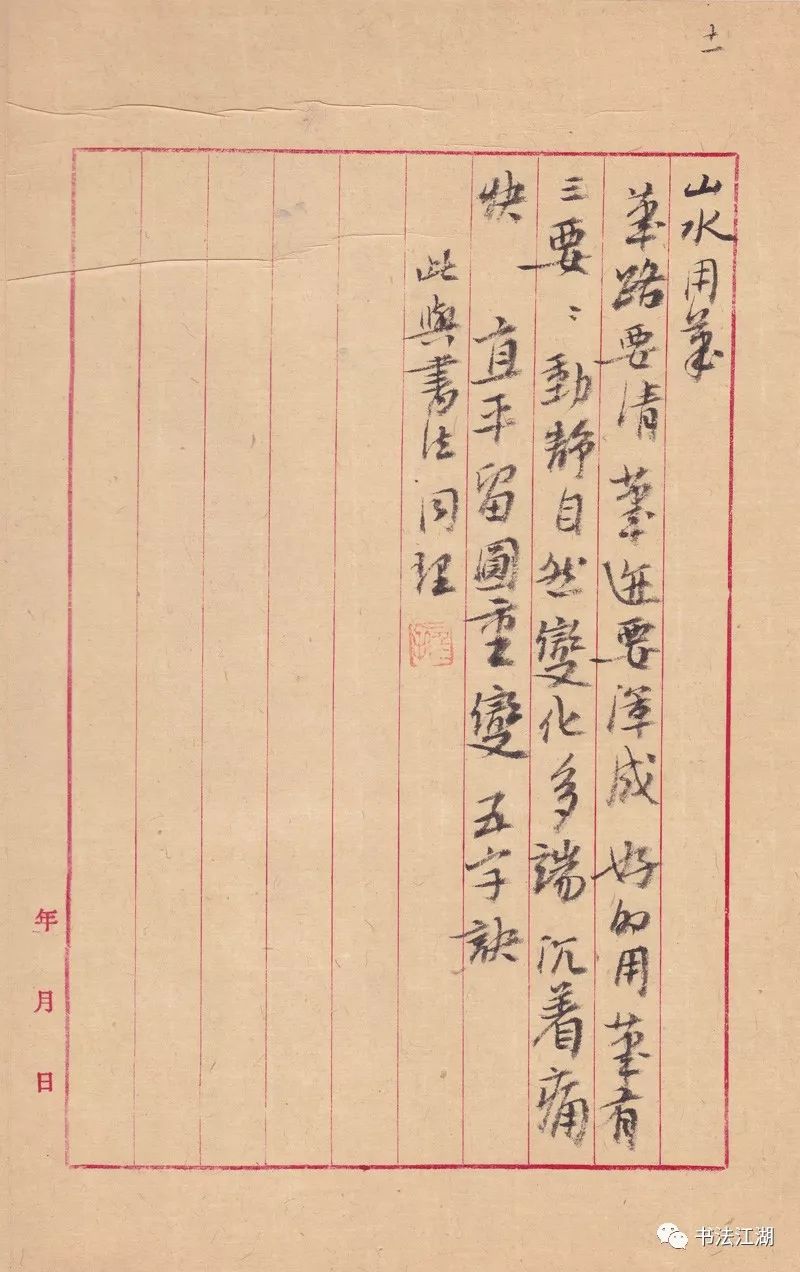 十一
山水用筆
筆路要清 筆迹要渾成 好的用筆有
三要：動靜自然變化多端 沉着痛
快 直平留圓重變 五字訣
此與書法同理
年 月 日
书法江湖